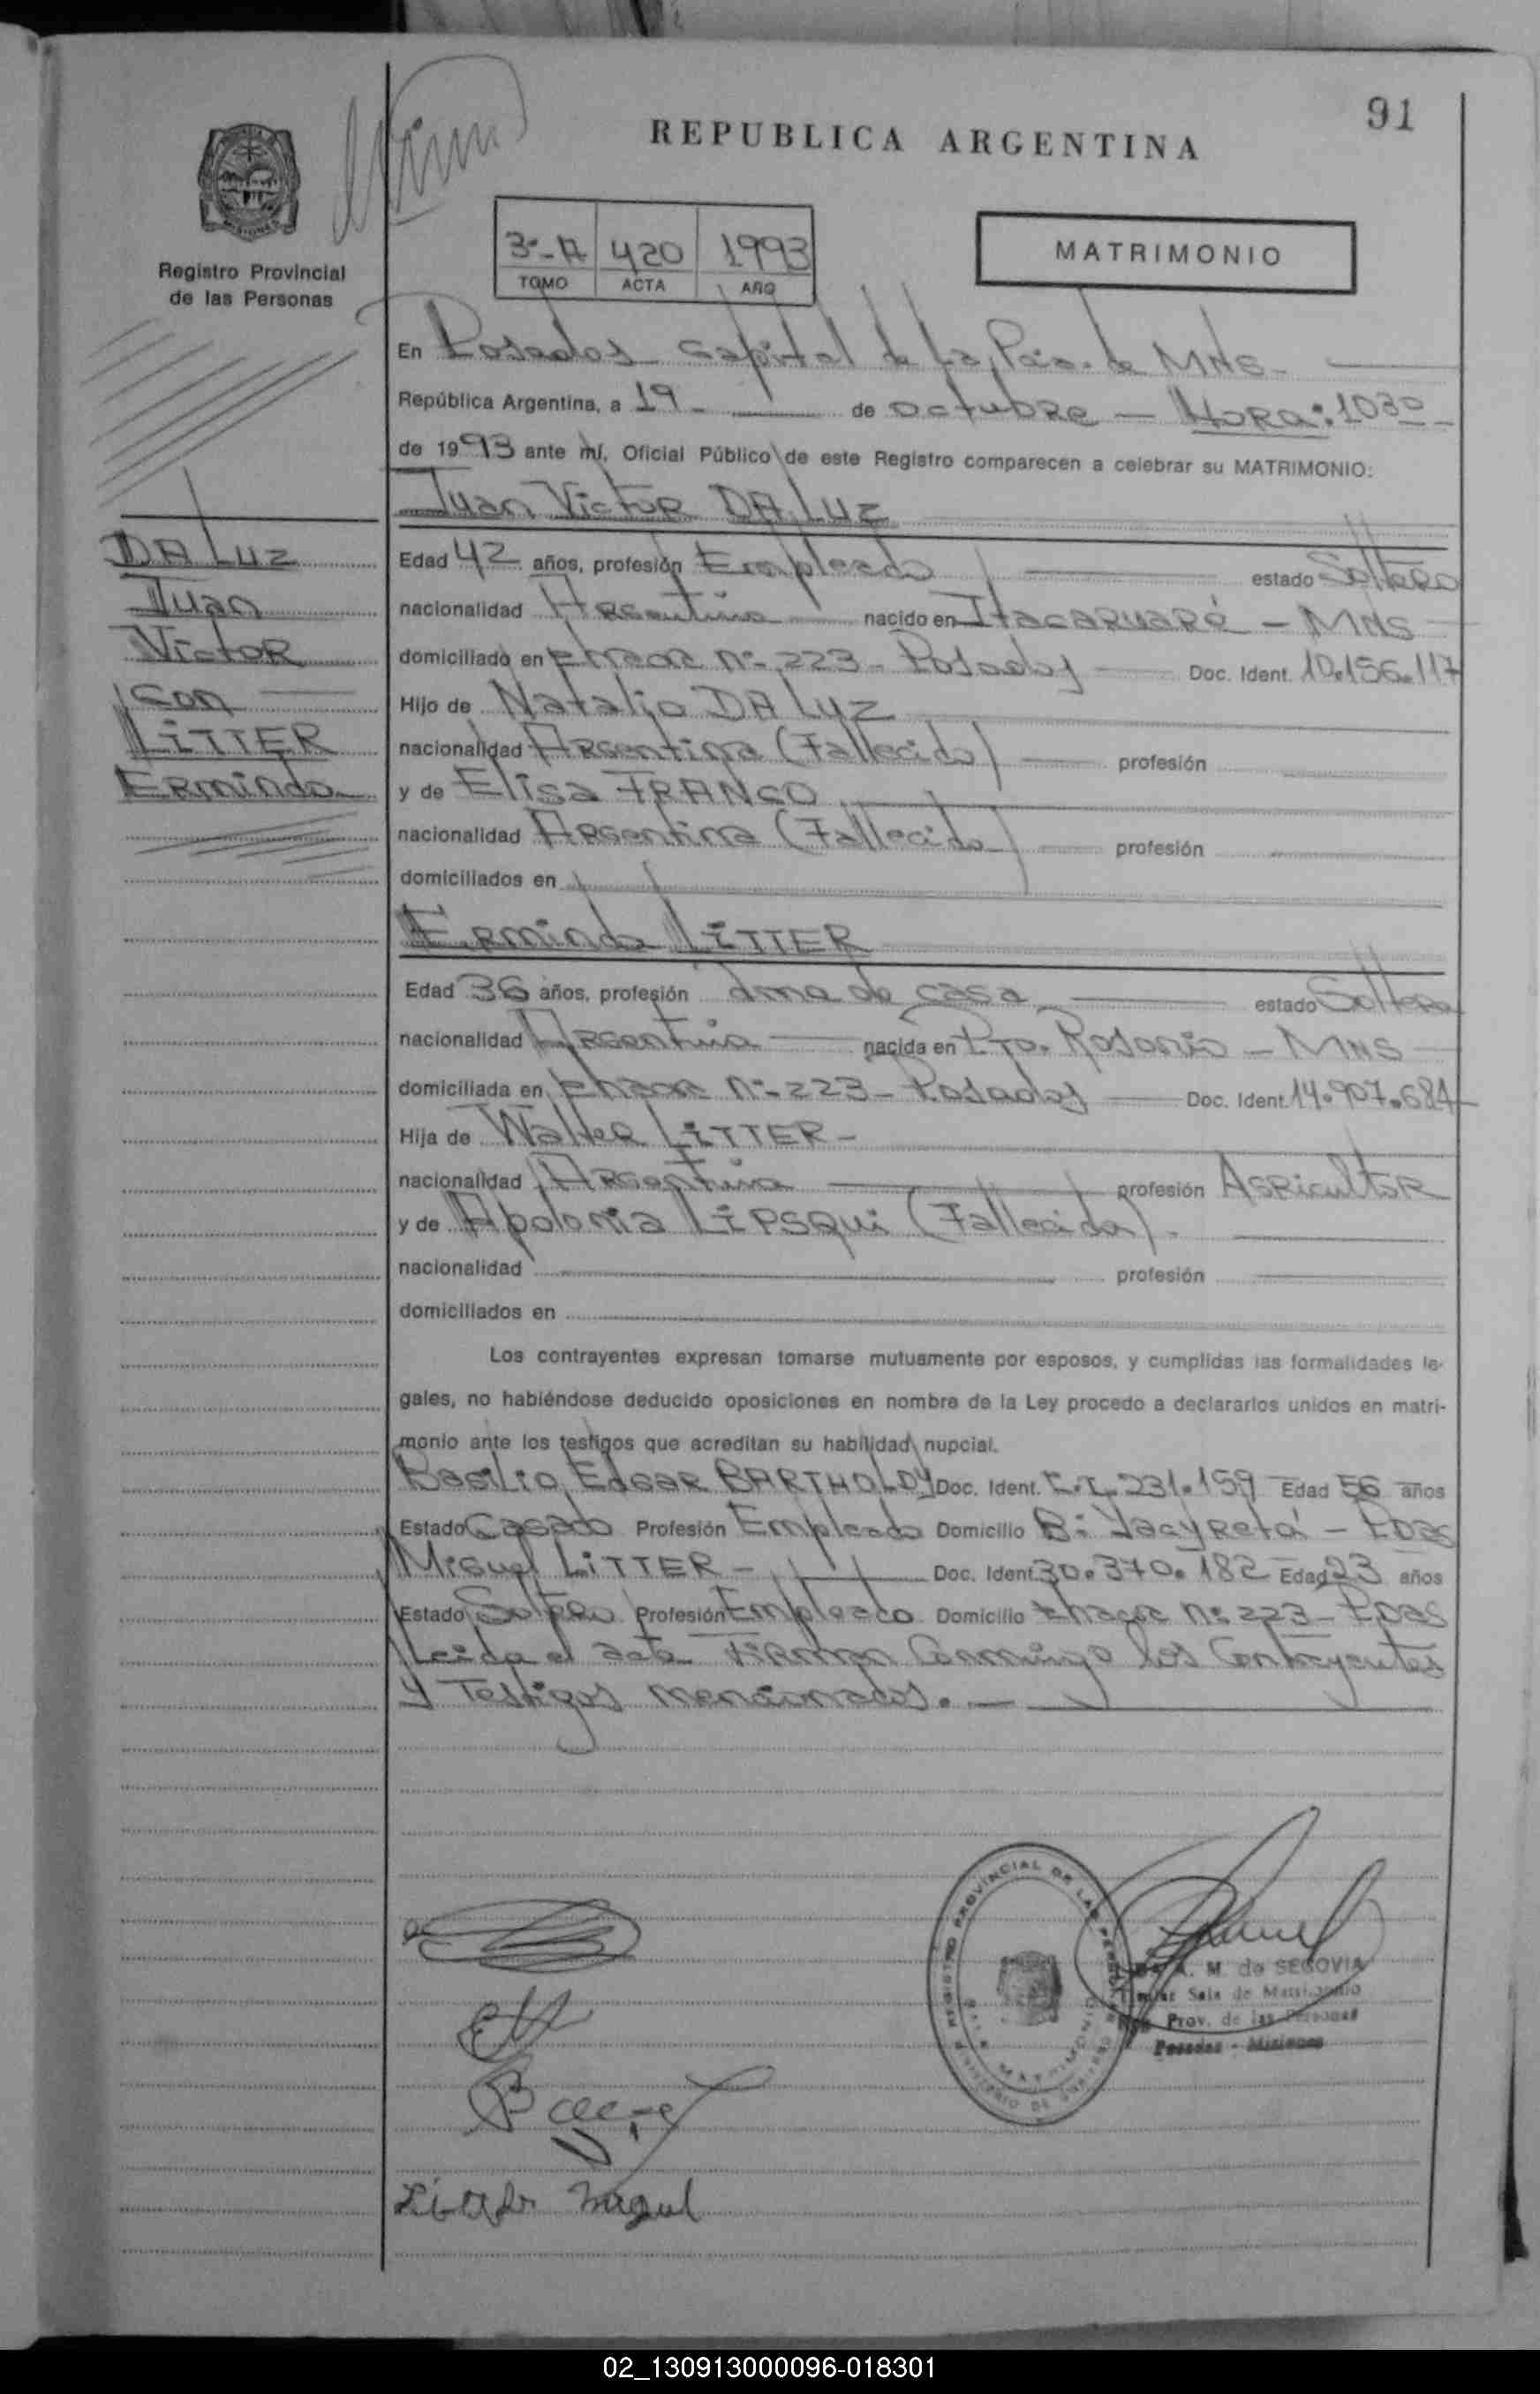 91
REPUBLICA ARGENTINA
Registro Provincial
de las Personas
3º-A 420 1993
TOMO ACTA AÑO
MATRIMONIO
En Posadas capital de la Pcia. de MNS-
República Argentina, a 19- de octubre - HORA: 1030
de 1993 ante mí, Oficial Público de este Registro comparecen a celebrar su MATRIMONIO:
Juan Victor DA LUZ
DA LUZ
Juan
Victor
con
LITTER
Erminda
Edad 42 años, profesión Empleado estado Soltero
nacionalidad Argentina nacido en Itacaruaré - MNS
domiciliado en Chacra Nº 223 - Posadas Doc. Ident. 10.156.117
Hijo de Natalio DA LUZ
nacionalidad Argentina (Fallecido) profesión
y de Elisa FRANCO
nacionalidad Argentina (Fallecida) profesión
domiciliados en
Erminda LITTER
Edad 36 años, profesión ama de casa estado Soltera
nacionalidad Argentina nacida en Pto. Rosario - MNS
domiciliada en Chacra Nº 223 - Posadas Doc. Ident. 14.907.684
Hija de Walter LITTER -
nacionalidad Argentina profesión Agricultor
y de Apolonia LIPSQUi (Fallecida).
nacionalidad profesión
domiciliados en
Los contrayentes expresan tomarse mutuamente por esposos, y cumplidas las formalidades le-
gales, no habiéndose deducido oposiciones en nombre de la Ley procedo a declararlos unidos en matri-
monio ante los testigos que acreditan su habilidad nupcial.
Basilio Edgar BARTHOLDY Doc. Ident. C.I. 231.159 Edad 56 años
Estado Casado Profesión Empleado Domicilio Bº Yacyretá - Pdas
Miguel LITTER - Doc. Ident. 30.370.182 Edad 23 años
Estado Soltero Profesión Empleado Domicilio Chacra Nº 223 - Pdas
Leida el acta Firman Conmigo los Contrayentes
y Testigos mencionados. -
REGISTRO PROVINCIAL DE LAS PERSONAS
MATRIMONIO
A. M. de SEGOVIA
Sala de Matrimonio
Prov. de las Personas
Posadas - Misiones
Litter Miguel
02_130913000096-018301